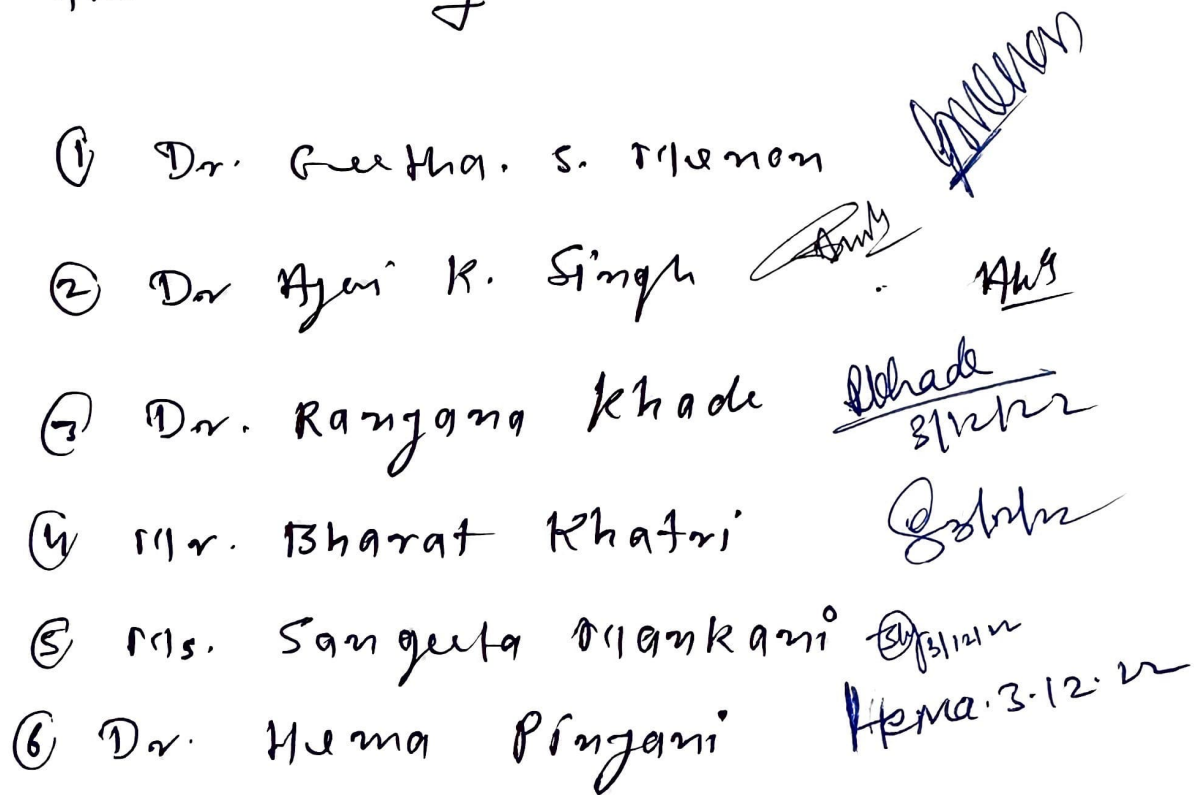 ① Dr. Geetha. S. Menon
② Dr Ajai K. Singh
③ Dr. Ranjana Khade Rkhade 3/12/22
④ Mr. Bharat Khatri
⑤ Ms. Sangeeta Mankani 3/12/22
⑥ Dr. Hema Pinjani Hema. 3.12.22